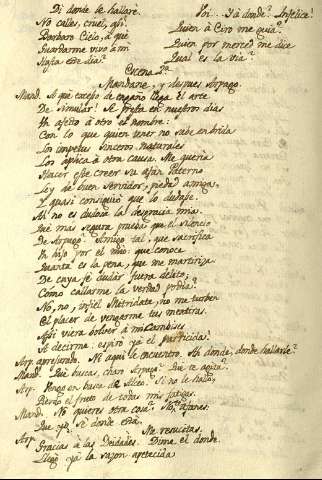 Di donde le hallaré.
No calles, cruel, así!
Barbaro Cielo, á qué
Guardarme vivo á mi
Hasta este dia?
Voi... Y á donde? Infelice!
Quien á Ciro me guia?
Quien por merced me dice
Qual es la via?
Escena 2ª
Mandane, y despues Arpago.
Mand. A qué exceso de engaño llega el arte
De simular! Se presta en nuestros dias
Un afecto á otro el nombre:
Con lo que quien tener no sabe en brida
Los impetus sinceros naturales
Los aplica á otra causa. Me queria
Hacer ese creer su afan Paterno
Ley de buen Servidor, piedad amiga,
Y quasi consiguió que lo dudase.
Ah no es dudosa la desgracia mia.
Qué mas segura prueba que el silencio
De Arpago? Amigo tal, que sacrifica
Un hijo por el mio: que conoce
Quanta es la pena, que me martiriza
De cuya fe dudar fuera delito,
Cómo callarme la verdad podia?
No, no, infiel Mitridate, no me turben
El placer de vengarme tus mentiras.
Así viera bolver á mi Cambises
A decirme: espiró yá el parricida!
Arp. apresurado. Ni aqui le encuentro. Ah donde, donde hallarle?
Mand. Qué buscas, charo Arpago? Qué te agita?
Arp. Vengo en busca de Alceo. Si no le hallo,
Pierdo el fruto de todas mis fatigas.
Mand. No quieres otra cosa? No te afanes:
Que yo sé donde está.
Arp. Me resucitas.
Gracias á las Deidades. Dime el donde.
Llegó yá la sazon apetecida